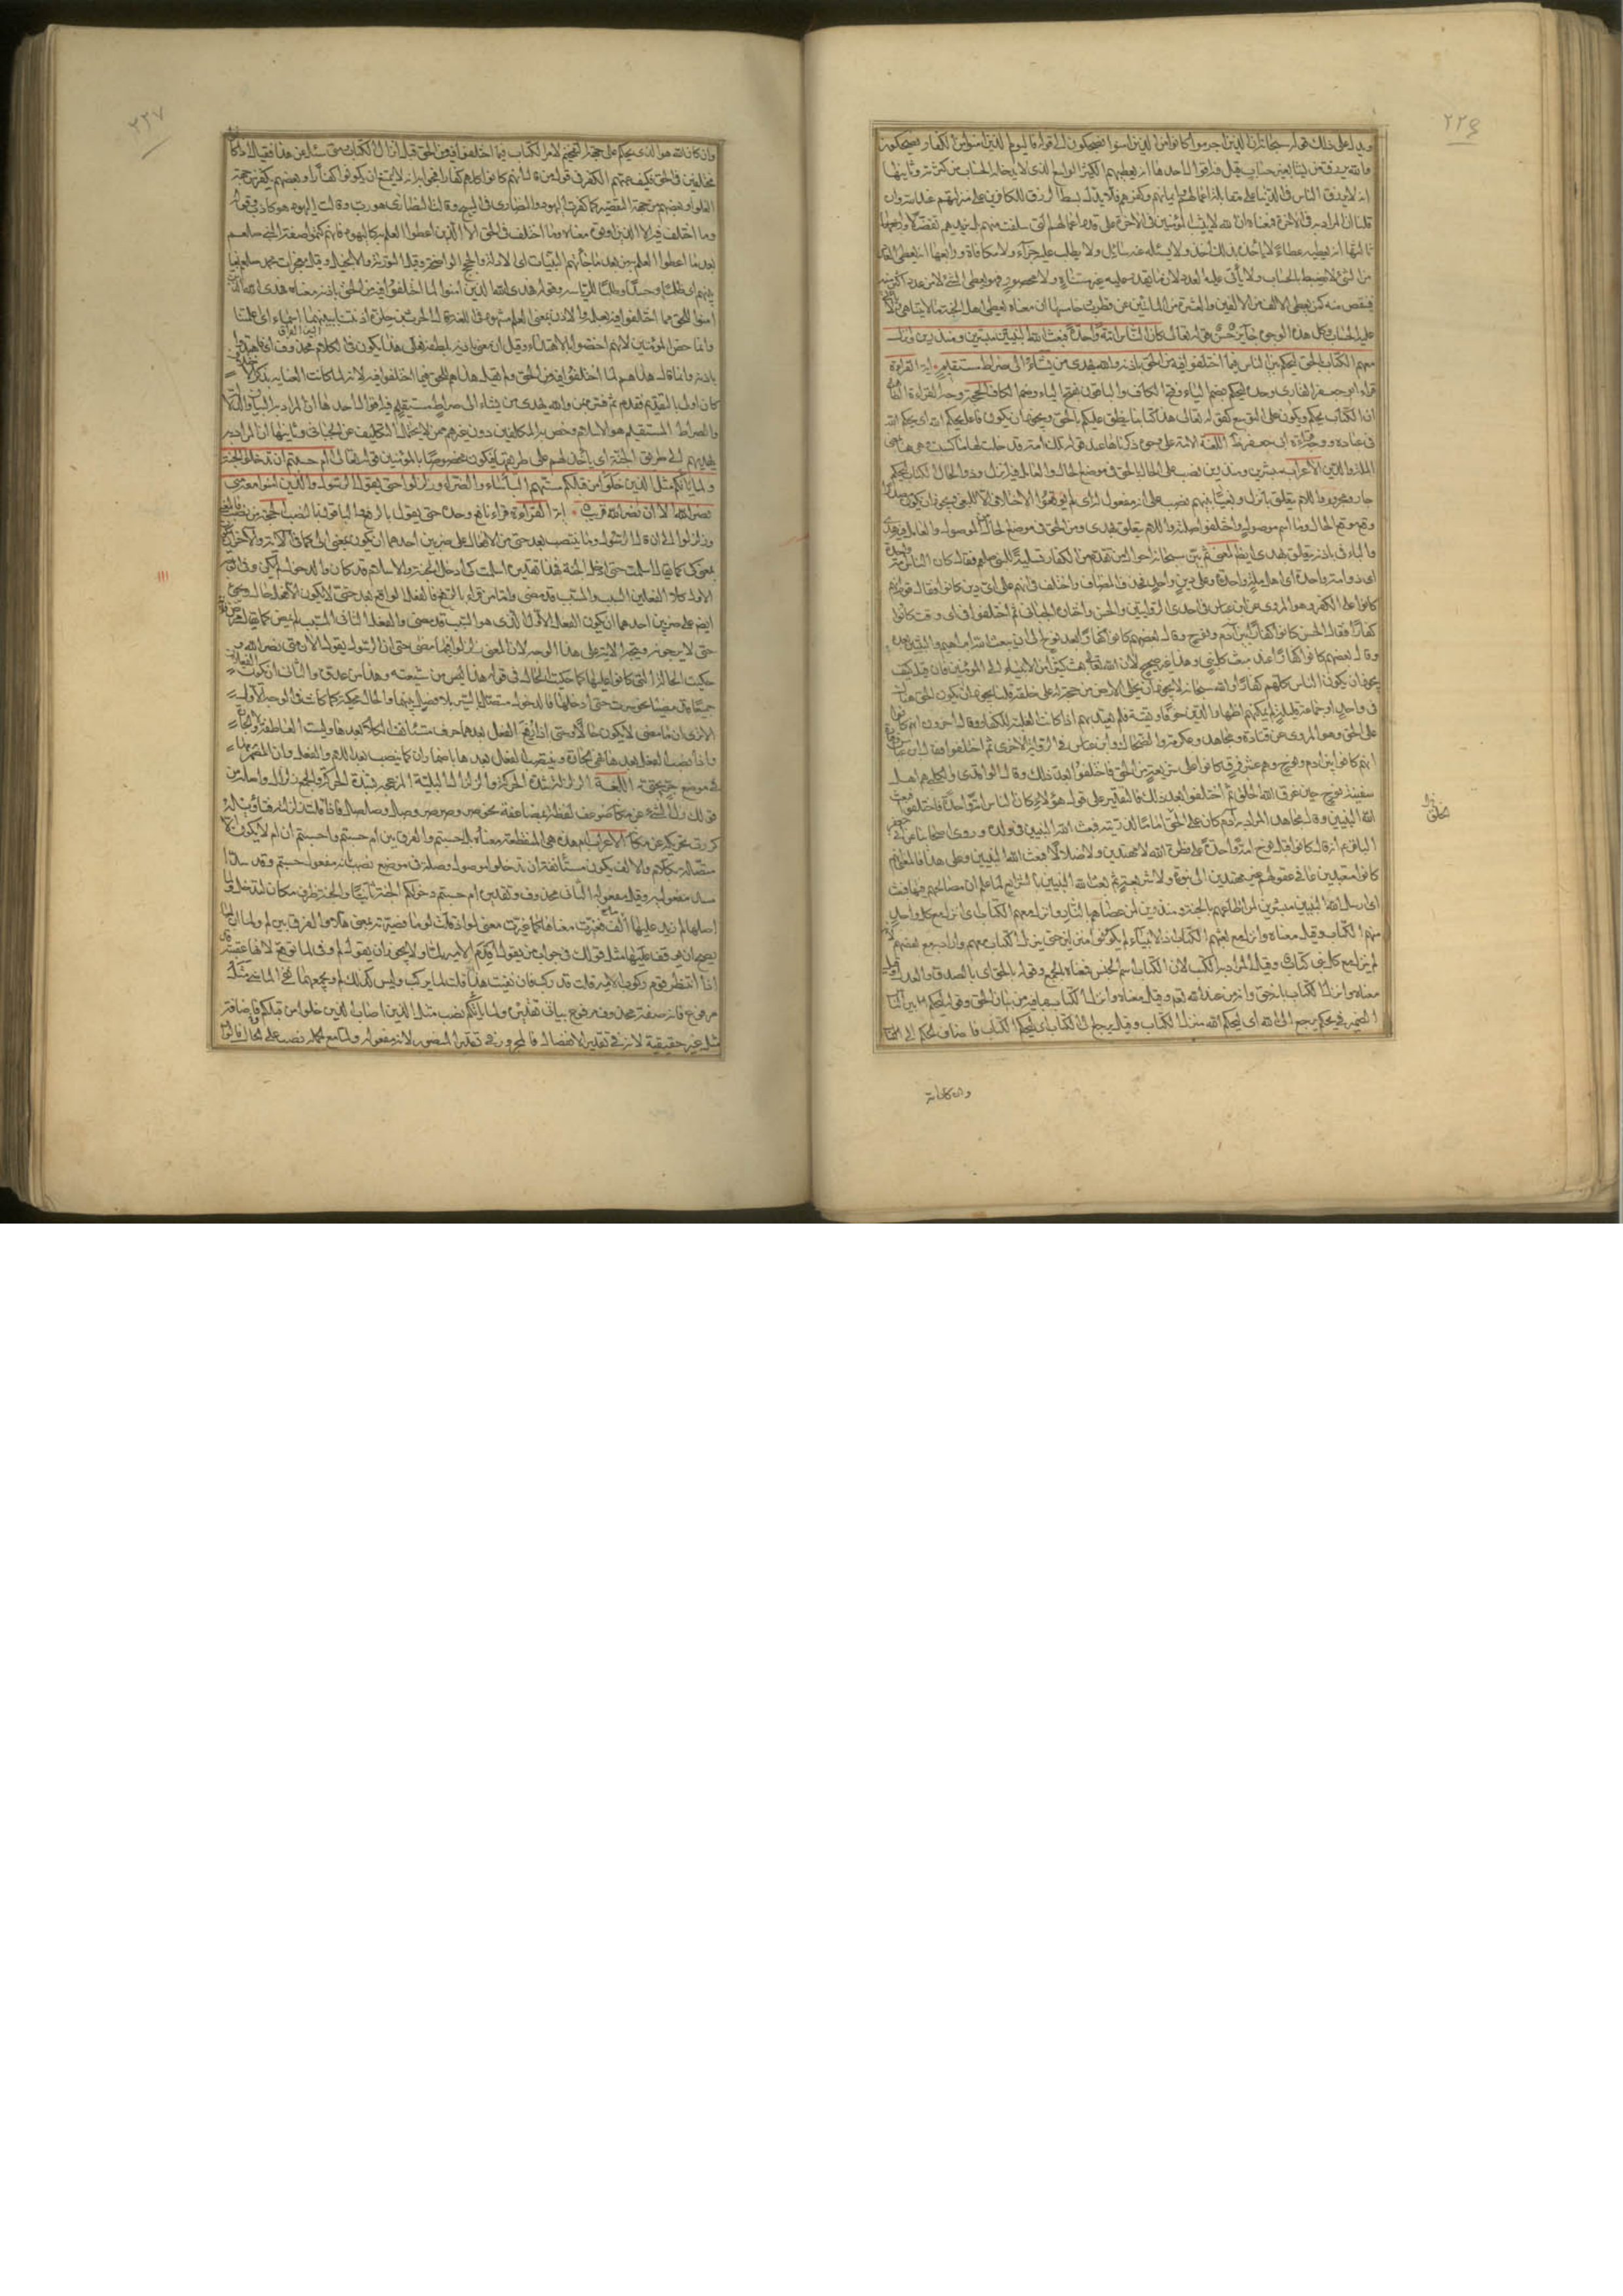 ٢٢٦
ويدل على ذلك قوله سبحانه ان الذين اجرموا كانوا من الذين امنوا يضحكون الى قوله فاليوم الذين امنوا من الكفار يضحكون
والله يرزق من يشاء بغير حساب قيل فيه اقوال احدها انه يعطيهم الكثير الواسع الذى لا يدخله الحساب من كثرته وثانيها
انه لا يرزق الناس فى الدنيا على مقابلة اعمالهم وايمانهم وكفرهم فلا يدل بسط الرزق للكافر على منزلتهم عند الله وان
قلنا ان المراد به فى الاخرة فمعناه ان الله لا يثيب المؤمنين فى الاخرة على قدر اعمالهم التى سلفت منهم بل يزيدهم تفضلا
ثالثها انه يعطيه عطاء لا ياخذه بذلك احد ولا يسئله عنه سائل ولا يطلب عليه جزاء ولا مكافاة ورابعها انه يعطى العدد
من الشئ لا يضبط بالحساب ولا ياتى عليه العدد لان ما يقدر عليه غير متناه ولا محصور فهو يعطى الشئ لا من عدد اكثر منه
فينقص منه كمن يعطى الالف من الالفين والعشرة من المائة عن قطرب خامسها ان معناه يعطى اهل الجنة ما لا يتناهى ولا ياتى
عليه الحساب وكل هذه الوجوه جائز حسن قوله تعالى كان الناس امة واحدة فبعث الله النبيين مبشرين ومنذرين وانزل
معهم الكتاب بالحق ليحكم بين الناس فيما اختلفوا فيه من الحق باذنه والله يهدى من يشاء الى صراط مستقيم اية القراءة
قراء ابو جعفر القارى وحده ليحكم بضم الياء وفتح الكاف والباقون بفتح الياء وضم الكاف الحجة وجه القراءة الظاهرة
ان الكتاب يحكم ويكون على التوسع كقوله تعالى هذا كتابنا ينطق عليكم بالحق ويجوز ان يكون فاعل يحكم الله اى يحكم الله
فى عباده ووجه قراءة ابى جعفر ظاهر اللغة الامة على وجوه ذكرناها عند قوله تلك امة قد خلت لها ما كسبت وهى هاهنا بمعنى
الملة والدين الاعراب مبشرين ومنذرين نصب على الحال بالحق فى موضع الحال والعامل فيه انزل وذو الحال الكتاب ليحكم
جار ومجرور واللام يتعلق بانزل وبغيا بينهم نصب على انه مفعول له اى لم يوقعوا الاختلاف الا للبغى ويجوز ان يكون مصدرا
وقع موقع الحال وما اسم موصول واختلفوا صلته واللام يتعلق بهدى ومن الحق فى موضع الحال من الموصول والعامل فيه هدى
والباء فى باذنه يتعلق بهدى ايضا المعنى ثم بين سبحانه احوال من تقدم من الكفار تسلية للنبى صلعم فقال كان الناس امة واحدة
اى ذوى امة واحدة اى اهل ملة واحدة وعلى دين واحد فحذف المضاف واختلف فى انهم على اى دين كانوا فقال قوم انهم
كانوا على الكفر وهو المروى عن ابن عباس فى احدى الروايتين والحسن واختاره الجبائى ثم اختلفوا فى اى وقت كانوا
كفارا فقال الحسن كانوا كفارا بين آدم ونوح وقال بعضهم كانوا كفارا بعد نوح الى ان يبعث الله ابراهيم والنبيين بعده
وقال بعضهم كانوا كفارا عند مبعث كل نبى وهذا غير صحيح لان الله تعالى بعث كثيرا من الانبياء الى المؤمنين فان قيل كيف
يجوز ان يكون الناس كلهم كفارا والله سبحانه لا يجوز ان يخلى الارض من حجة له على خلقه قلنا يجوز ان يكون الحق هناك
فى واحد او جماعة قليلة لم يمكنهم اظهار الدين خوفا وتقية فلم يعتد بهم اذا كانت الغلبة للكفار وقال اخرون انهم كانوا
على الحق وهو المروى عن قتادة ومجاهد وعكرمة والضحاك وابن عباس فى الرواية الاخرى ثم اختلفوا فقال ابن عباس وقتادة
انهم كانوا بين ادم ونوح وهم عشر فرق كانوا على شريعة من الحق فاختلفوا بعد ذلك وقال الواقدى والكلبى هم اهل
سفينة نوح حين غرق الله الخلق ثم اختلفوا بعد ذلك فالتقدير على قول هؤلاء كان الناس امة واحدة فاختلفوا فبعث
الله النبيين وقال مجاهد المراد به آدم كان على الحق اماما لذريته فبعث الله النبيين فى ولده وروى اصحابنا عن ابى جعفر
الباقر ع انه قال كانوا قبل نوح امة واحدة على فطرة الله لا مهتدين ولا ضلالا فبعث الله النبيين وعلى هذا فالمعنى انهم
كانوا متعبدين بما فى عقولهم غير مهتدين الى نبوة ولا شريعة ثم بعث الله النبيين بالشرائع لما علم ان مصالحهم فيها فبعث
اى ارسل الله النبيين مبشرين لمن اطاعهم بالجنة ومنذرين لمن عصاهم بالنار وانزل معهم الكتاب اى انزل مع كل واحد
منهم الكتاب وقيل معناه وانزل مع بعثهم الكتاب اذ الانبياء لم يكونوا منزلين حتى ينزل الكتاب معهم واراد به مع بعضهم لانه
لم ينزل مع كل نبى كتاب وقيل المراد به الكتب لان الكتاب اسم الجنس فمعناه الجمع وقوله بالحق اى بالصدق والعدل وقيل
معناه وانزل الكتاب بانه حق وانه من عند الله لهم وقيل معناه وانزل الكتاب بما فيه من بيان الحق وقوله ليحكم بين الناس
الضمير فى يحكم يرجع الى الله اى ليحكم الله منزل الكتاب وقيل يرجع الى الكتاب اى ليحكم الكتاب فاضاف الحكم الى الكتاب
وان كان الله
٢٢٧
وان كان الله هو الذى يحكم على جهة التفخيم لامر الكتاب فيما اختلفوا فيه من الحق قبل انزال الكتاب متى سئل عن هذا فقيل اذا كانوا
مختلفين فى الحق فكيف عمهم الكفر فى قول من قال انهم كانوا كلهم كفارا فجوابه انه لا يمتنع ان يكونوا كفارا وبعضهم يكفر من جهة
الغلو وبعضهم من جهة التقصير كما كفرت اليهود والنصارى فى المسيح وقالت النصارى هو رب وقالت اليهود هو كاذب وقوله
وما اختلف فيه الا الذين اوتوه معناه وما اختلف فى الحق الا الذين اعطوا العلم به كاليهود فانهم كتموا صفة النبى صلعم
بعد ما اعطوا العلم به من بعد ما جائتهم البينات اى الادلة والحجج الواضحة وقيل التورية والانجيل وقيل معجزات محمد صلعم بغيا
بينهم اى ظلما وحسدا وطلبا للرياسة وقوله فهدى الله الذين امنوا لما اختلفوا فيه من الحق باذنه معناه فهدى الله الذين
امنوا للحق مما اختلفوا فيه بعلمه والاذن بمعنى العلم مشهور فى اللغة
وانما خص المؤمنين لانهم اختصوا بالاهتداء وقيل ان معنى باذنه بلطفه فعلى هذا يكون فى الكلام محذوف اى فاهتدوا
باذنه وانما قال هداهم لما اختلفوا فيه من الحق ولم يقل هداهم للحق فيما اختلفوا فيه لانه لما كانت العناية بذكر الاختلاف
كان اولى بالتقديم فقدم ثم فسره بمن والله يهدى من يشاء الى صراط مستقيم فيه اقوال احدها ان المراد به البيان والدلالة
والصراط المستقيم هو الاسلام وخص به المكلفين دون غيرهم ممن لا يحتمل التكليف عن الجبائى وثانيها ان المراد به
يهديهم الى طريق الجنة اى ياخذ بهم على طريقها فيكون مخصوصا بالمؤمنين قوله تعالى ام حسبتم ان تدخلوا الجنة
ولما ياتكم مثل الذين خلوا من قبلكم مستهم الباساء والضراء وزلزلوا حتى يقول الرسول والذين امنوا معه متى
نصر الله الا ان نصر الله قريب اية القراءة قراء نافع وحده حتى يقول بالرفع والباقون بالنصب الحجة من نصب فالمعنى
وزلزلوا الى ان قال الرسول وما ينتصب بعد حتى من الافعال على ضربين احدهما ان يكون بمعنى الى كما فى الاية والاخر ان يكون
بمعنى كى كما يقال اسلمت حتى ادخل الجنة فهذا تقديره اسلمت كى ادخل الجنة والاسلام قد كان والدخول لم يكن وفى الوجه
الاول كلا الفعلين السبب والمسبب قد مضى واما من قراء بالرفع فالفعل الواقع بعد حتى لا يكون الا فعل حال ويجئ
ايضا على ضربين احدهما ان يكون الفعل الاول الذى هو السبب قد مضى والفعل الثانى المسبب لم يمض كما يقال مرض
حتى لا يرجونه وتتجه الاية على هذا الوجه لان المعنى زلزلوا فيما مضى حتى ان الرسول يقول الان متى نصر الله و
حكيت الحال التى كانوا عليها كما حكيت الحال فى قوله هذا من شيعته وهذا من عدوه والثانى ان يكون الفعلان
جميعا قد مضيا نحو سرت حتى ادخلها فالدخول متصل بالسير بلا فصل بينهما والحال محكية كما كانت فى الوجه الاول
الا ترى ان ما مضى لا يكون حالا وحتى اذا رفع الفعل بعدها حرف مستئنف الكلام بعدها وليست العاطفة ولا الجارة
واذا نصب الفعل بعدها فهى الجارة وينتصب الفعل بعدها باضمار ان كما ينصب بعد اللام والفعل وان المضمرة
فى موضع جر بحتى اللغة الزلزلة شدة الحركة والزلزال البلية المزعجة لشدة الحركة والجمع زلازل واصله من
قولك زل الشئ عن مكانه ضوعف لفظه لمضاعفة معناه نحو صر وصرصر وصل وصلصل فاذا قلت زلزلته فتاويله
كررت تحريكه عن مكانه الاعراب ام هذه هى المنقطعة معناه بل احسبتم والفرق بين ام حسبتم واحسبتم ان ام لا يكون الا
متصلة بكلام والالف يكون مستانفة ان تدخلوا موصول وصلة فى موضع نصب بانه مفعول حسبتم وقد سد
مسد مفعوليه وقيل مفعوله الثانى محذوف وتقديره ام حسبتم دخولكم الجنة ثابتا والجنة ظرف مكان لتدخلوا ولما
اصلها لم زيد عليها ما فغيرت معناها كما غيرت معنى لو اذا قلت لو ما فصيرته بمعنى هلا والفرق بين لم ولما ان لما
يصح ان يوقف عليها مثل قولك فى جواب من يقول اقدم الامير لما ولا يجوز ان يقول لم وفى لما توقع لانها عقيبة قد
اذا انتظر قوم ركوب الامير قلت قد ركب فان نفيت هذا قلت لما يركب وليس كذلك لم ويجمعهما نفى الماضى مثل
مرفوع فانه صفة محذوف مرفوع بياتى تقديره ولما ياتكم نصب مثل الذين اصاب الذين خلوا من قبلكم فاضافة
مثل غير حقيقية لانه فى تقدير الانفصال فالمجرور فى تقدير المنصوب لانه مفعول ولما مع الجملة نصب على الحال